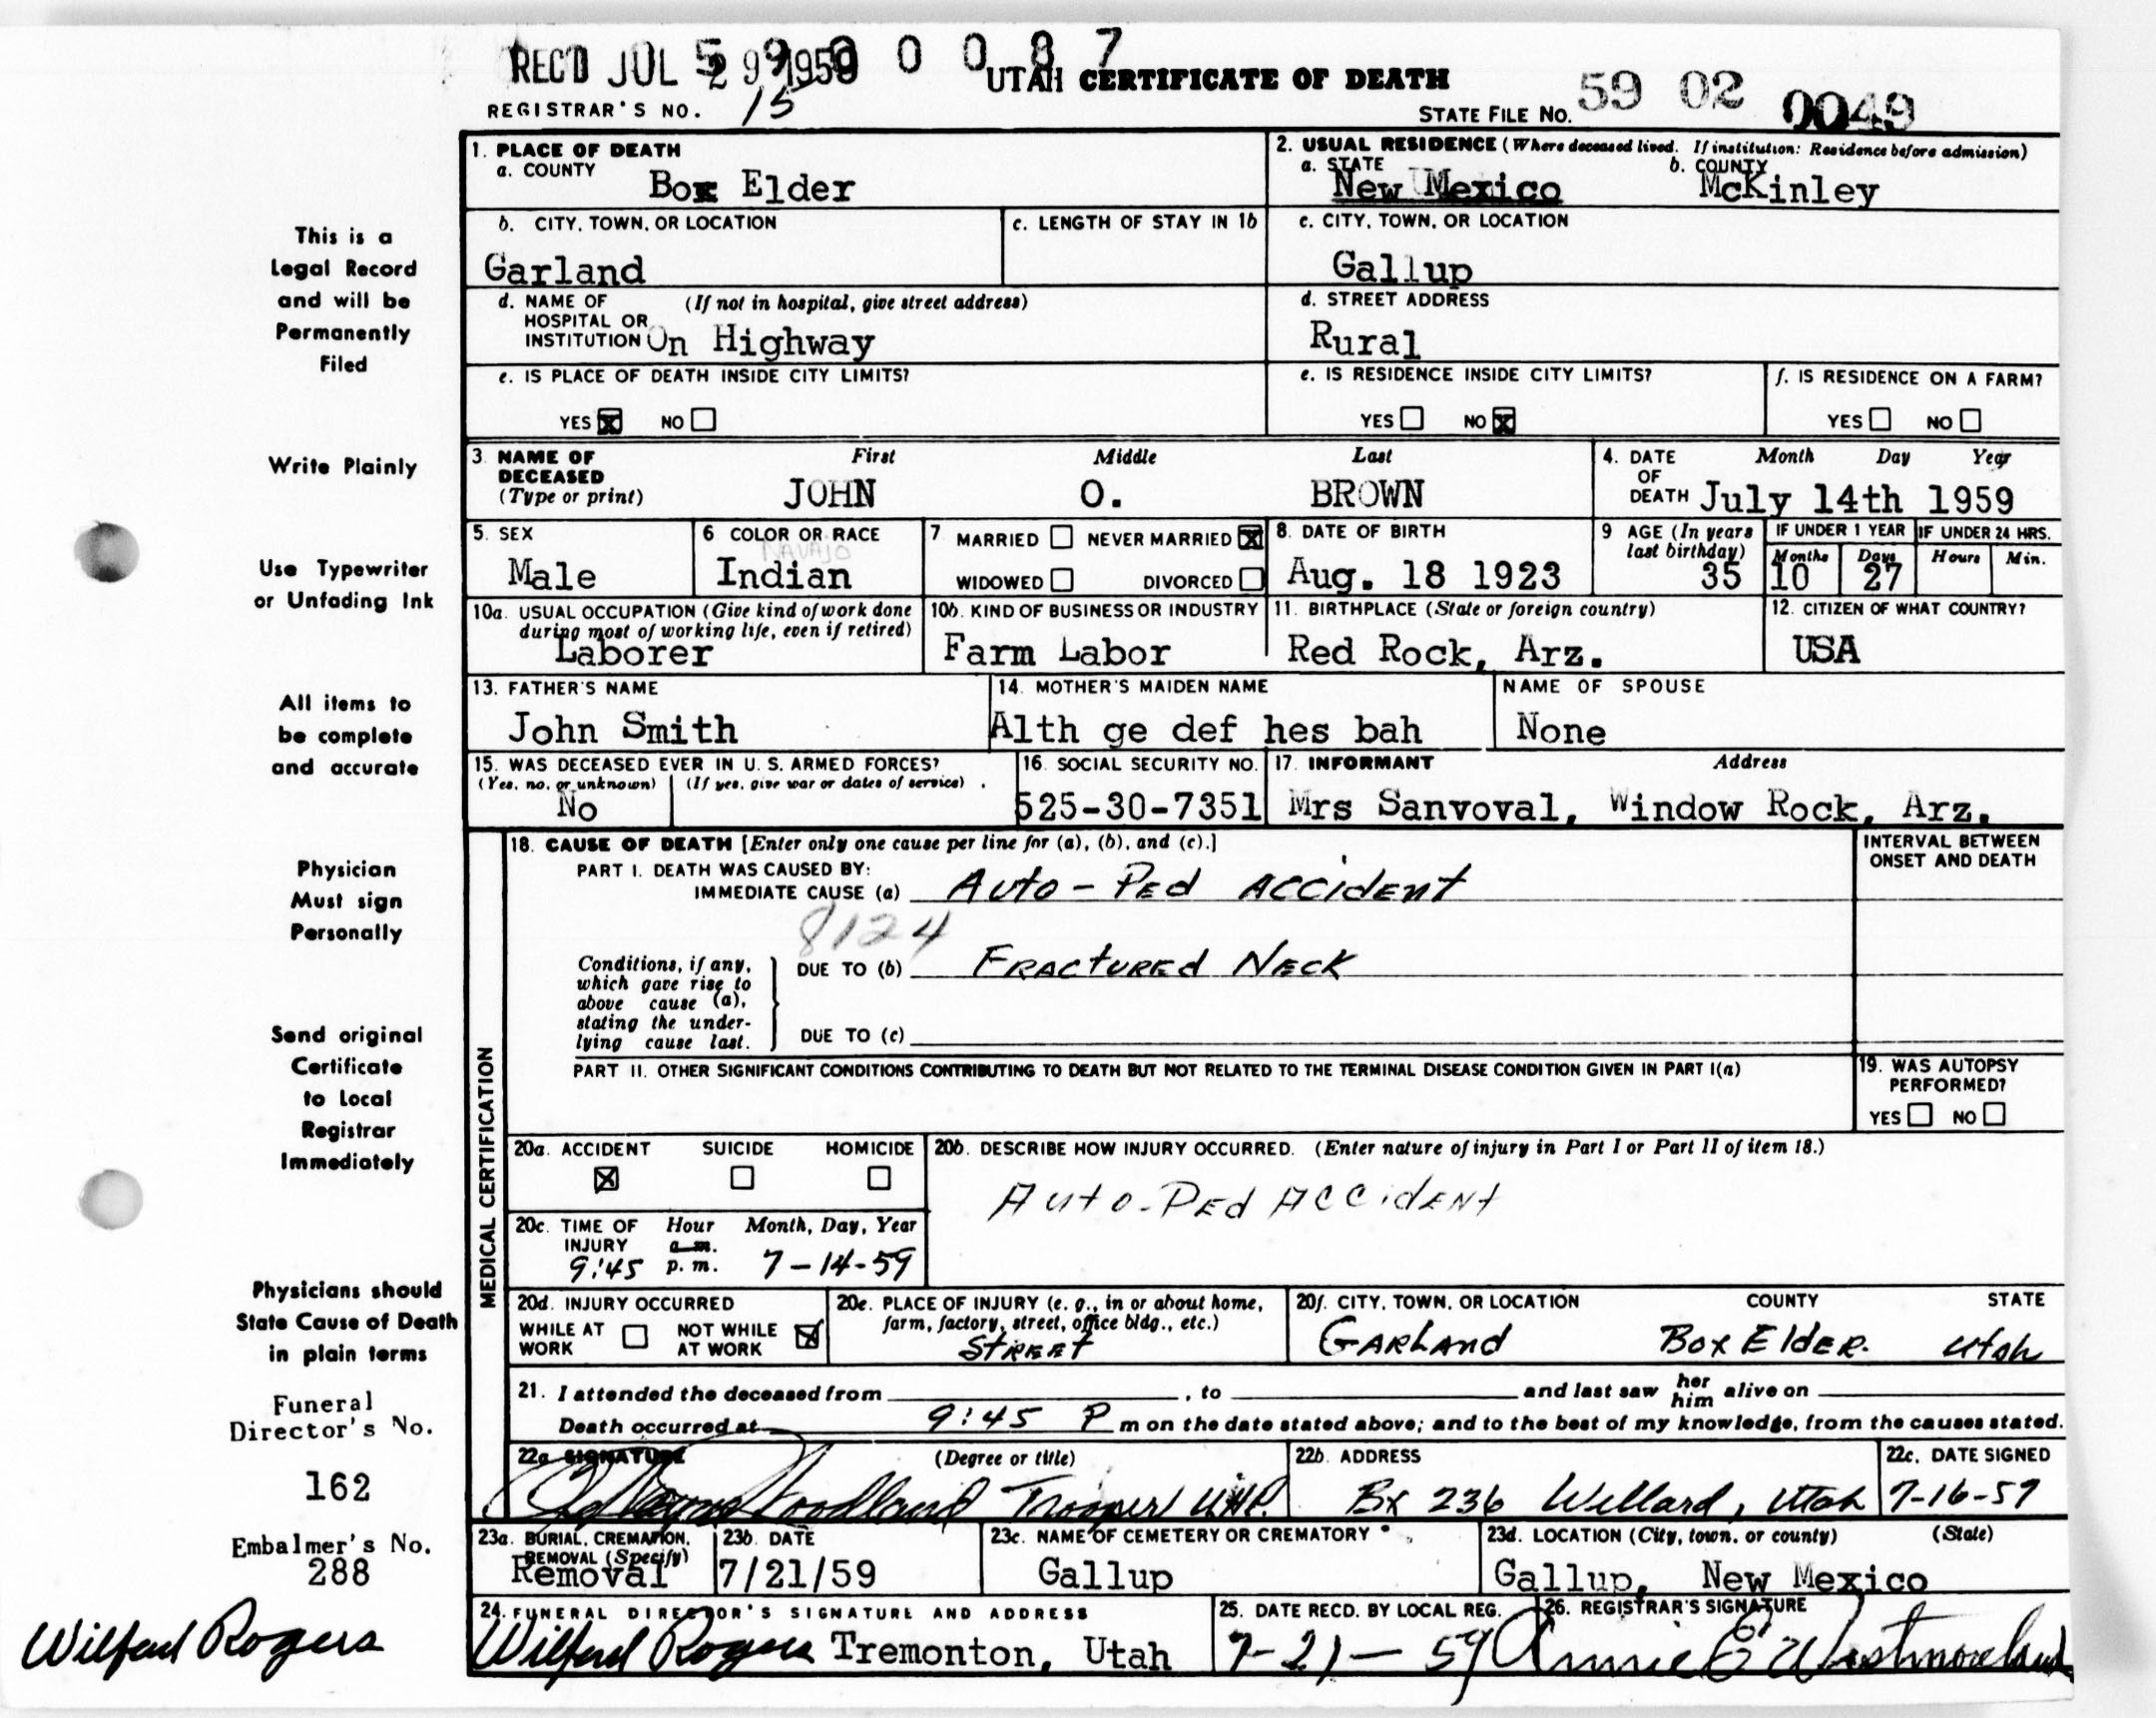 REC'D JUL 29 1959
59 0 0 0 8 7
UTAH CERTIFICATE OF DEATH
REGISTRAR'S NO. 15
STATE FILE NO. 59 02 0049
This is a
Legal Record
and will be
Permanently
Filed
Write Plainly
Use Typewriter
or Unfading Ink
All items to
be complete
and accurate
Physician
Must sign
Personally
Send original
Certificate
to Local
Registrar
Immediately
Physicians should
State Cause of Death
in plain terms
Funeral
Director's No.
162
Embalmer's No.
288
Wilford Rogers
1. PLACE OF DEATH
a. COUNTY Box Elder
2. USUAL RESIDENCE (Where deceased lived. If institution: Residence before admission)
a. STATE New Mexico b. COUNTY McKinley
b. CITY, TOWN, OR LOCATION
Garland
c. LENGTH OF STAY IN 1b
c. CITY, TOWN, OR LOCATION
Gallup
d. NAME OF (If not in hospital, give street address)
HOSPITAL OR
INSTITUTION On Highway
d. STREET ADDRESS
Rural
e. IS PLACE OF DEATH INSIDE CITY LIMITS?
YES X NO
e. IS RESIDENCE INSIDE CITY LIMITS?
YES NO X
f. IS RESIDENCE ON A FARM?
YES NO
3. NAME OF First Middle Last
DECEASED
(Type or print) JOHN O. BROWN
4. DATE Month Day Year
OF
DEATH July 14th 1959
5. SEX
Male
6 COLOR OR RACE
NAVAJO
Indian
7 MARRIED NEVER MARRIED X
WIDOWED DIVORCED
8. DATE OF BIRTH
Aug. 18 1923
9 AGE (In years
last birthday)
35
IF UNDER 1 YEAR
Months Days
10 27
IF UNDER 24 HRS.
Hours Min.
10a. USUAL OCCUPATION (Give kind of work done
during most of working life, even if retired)
Laborer
10b. KIND OF BUSINESS OR INDUSTRY
Farm Labor
11. BIRTHPLACE (State or foreign country)
Red Rock, Arz.
12. CITIZEN OF WHAT COUNTRY?
USA
13. FATHER'S NAME
John Smith
14. MOTHER'S MAIDEN NAME
Alth ge def hes bah
NAME OF SPOUSE
None
15. WAS DECEASED EVER IN U. S. ARMED FORCES?
(Yes, no, or unknown) (If yes, give war or dates of service)
No
16. SOCIAL SECURITY NO.
525-30-7351
17. INFORMANT Address
Mrs Sanvoval, Window Rock, Arz.
MEDICAL CERTIFICATION
18. CAUSE OF DEATH [Enter only one cause per line for (a), (b), and (c).]
PART I. DEATH WAS CAUSED BY:
IMMEDIATE CAUSE (a) Auto-Ped Accident
8124
Conditions, if any,
which gave rise to
above cause (a),
stating the under-
lying cause last.
DUE TO (b) Fractured Neck
DUE TO (c)
INTERVAL BETWEEN
ONSET AND DEATH
PART II. OTHER SIGNIFICANT CONDITIONS CONTRIBUTING TO DEATH BUT NOT RELATED TO THE TERMINAL DISEASE CONDITION GIVEN IN PART I(a)
19. WAS AUTOPSY
PERFORMED?
YES NO
20a. ACCIDENT SUICIDE HOMICIDE
X
20b. DESCRIBE HOW INJURY OCCURRED. (Enter nature of injury in Part I or Part II of item 18.)
Auto-Ped Accident
20c. TIME OF Hour Month, Day, Year
INJURY a.m.
9:45 p. m. 7-14-59
20d. INJURY OCCURRED
WHILE AT NOT WHILE X
WORK AT WORK
20e. PLACE OF INJURY (e. g., in or about home,
farm, factory, street, office bldg., etc.)
Street
20f. CITY, TOWN, OR LOCATION COUNTY STATE
Garland Box Elder. Utah
21. I attended the deceased from , to and last saw her him alive on
Death occurred at 9:45 P m on the date stated above; and to the best of my knowledge, from the causes stated.
22a SIGNATURE (Degree or title)
Woodland Trooper U.H.P.
22b. ADDRESS
Bx 236 Willard, Utah
22c. DATE SIGNED
7-16-59
23a. BURIAL, CREMATION,
REMOVAL (Specify)
Removal
23b. DATE
7/21/59
23c. NAME OF CEMETERY OR CREMATORY
Gallup
23d. LOCATION (City, town, or county) (State)
Gallup, New Mexico
24. FUNERAL DIRECTOR'S SIGNATURE AND ADDRESS
Wilford Rogers Tremonton, Utah
25. DATE RECD. BY LOCAL REG.
7-21-59
26. REGISTRAR'S SIGNATURE
Annie E Westmoreland